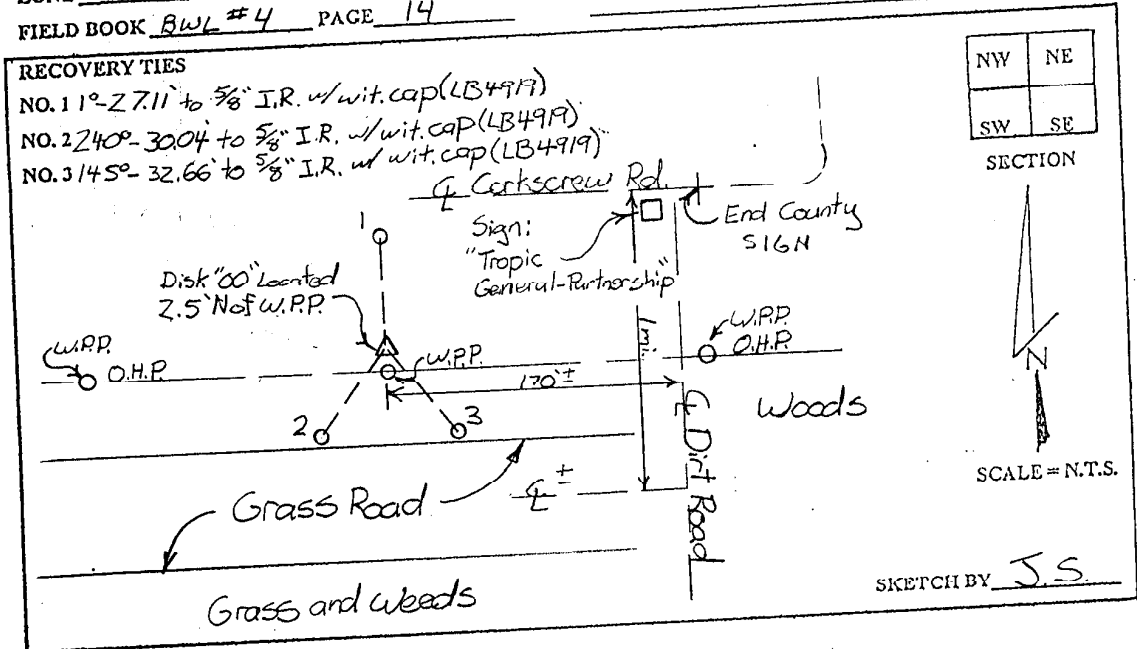 FIELD BOOK BWL #4 PAGE 14
RECOVERY TIES
NO. 1 1°-27.11' to 5/8" I.R. w/wit.cap(LB4919)
NO. 2 240°-30.04' to 5/8" I.R. w/wit.cap(LB4919)
NO. 3 145°-32.66' to 5/8" I.R. w/ wit.cap(LB4919)
NW NE
SW SE
SECTION
℄ Corkscrew Rd.
Sign:
"Tropic
General-Partnership"
End County
SIGN
1
Disk "OO" Located
2.5' N of W.P.P.
W.P.P.
O.H.P.
W.P.P.
W.P.P.
O.H.P.
1 mi.
170'±
2
3
℄ Dirt Road
Woods
N
SCALE = N.T.S.
Grass Road
℄ ±
Grass and Weeds
SKETCH BY J.S.